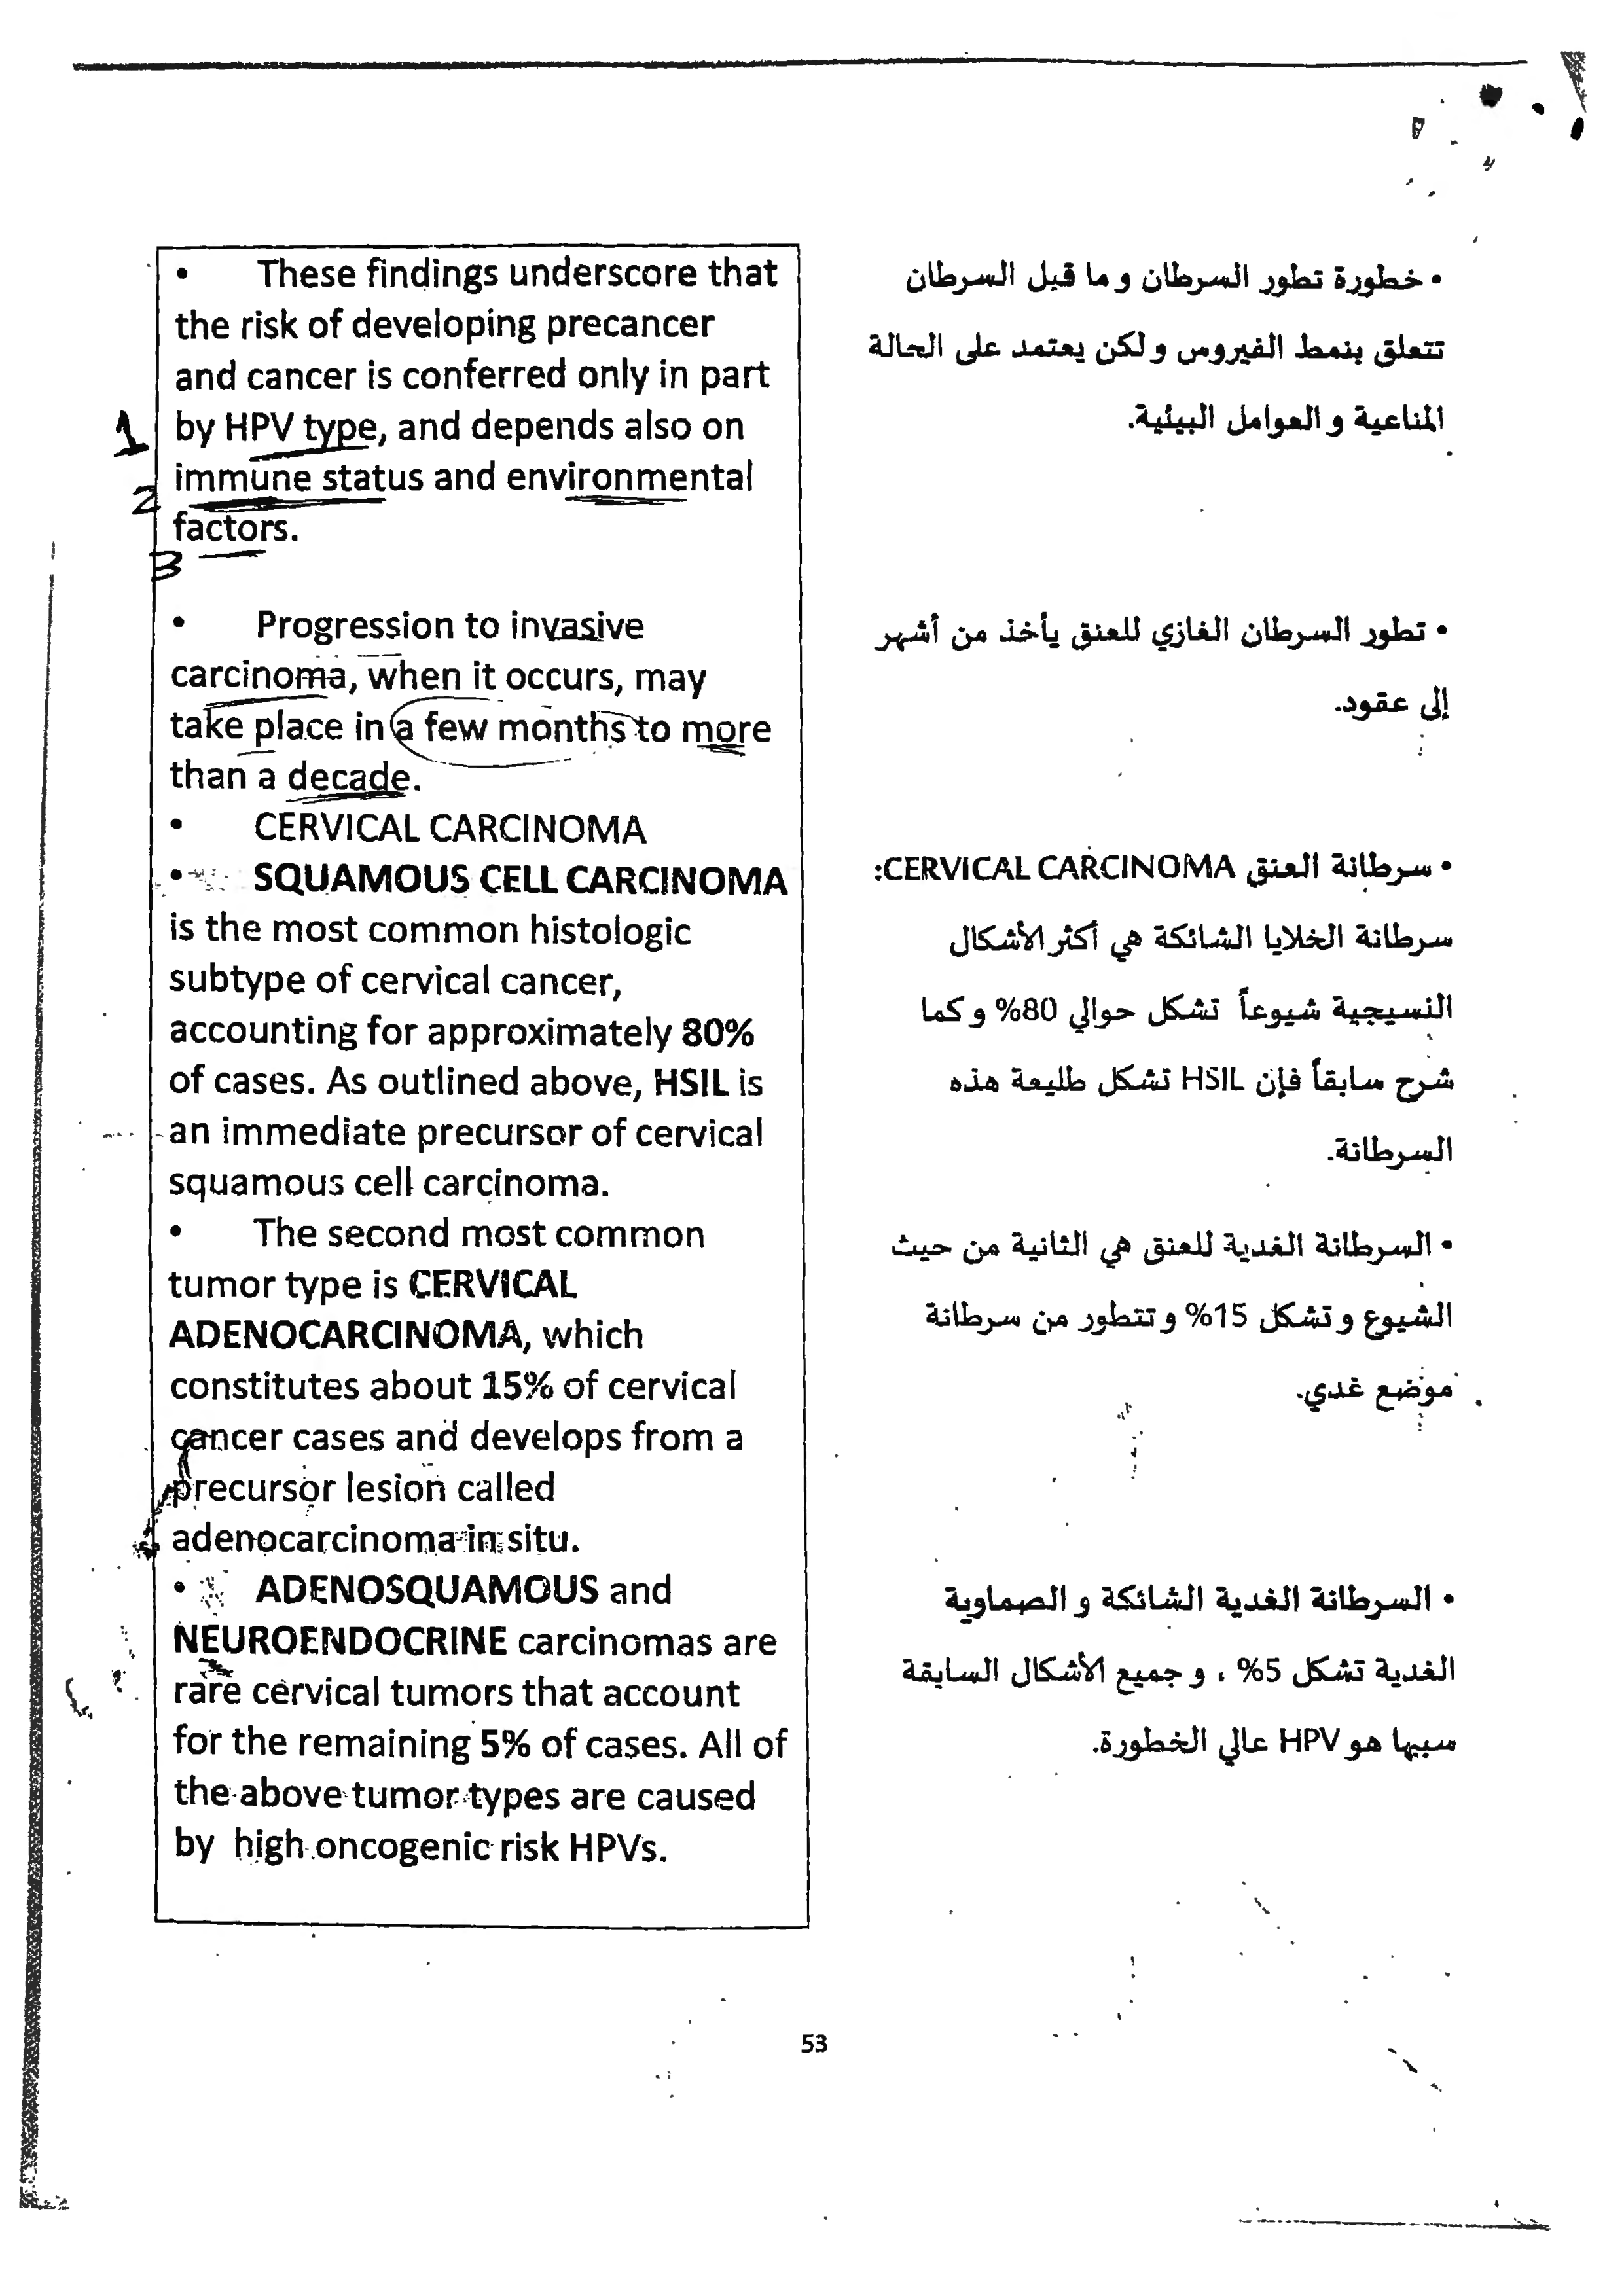 • These findings underscore that
the risk of developing precancer
and cancer is conferred only in part
by HPV type, and depends also on
immune status and environmental
factors.
1
2
3
• Progression to invasive
carcinoma, when it occurs, may
take place in a few months to more
than a decade.
• CERVICAL CARCINOMA
• SQUAMOUS CELL CARCINOMA
is the most common histologic
subtype of cervical cancer,
accounting for approximately 80%
of cases. As outlined above, HSIL is
an immediate precursor of cervical
squamous cell carcinoma.
• The second most common
tumor type is CERVICAL
ADENOCARCINOMA, which
constitutes about 15% of cervical
cancer cases and develops from a
precursor lesion called
adenocarcinoma in situ.
• ADENOSQUAMOUS and
NEUROENDOCRINE carcinomas are
rare cervical tumors that account
for the remaining 5% of cases. All of
the above tumor types are caused
by high oncogenic risk HPVs.
• خطورة تطور السرطان و ما قبل السرطان
تتعلق بنمط الفيروس و لكن يعتمد على الحالة
المناعية و العوامل البيئية.
• تطور السرطان الغازي للعنق يأخذ من أشهر
إلى عقود.
• سرطانة العنق CERVICAL CARCINOMA:
سرطانة الخلايا الشائكة هي أكثر الأشكال
النسيجية شيوعاً تشكل حوالي 80% و كما
شرح سابقاً فإن HSIL تشكل طليعة هذه
السرطانة.
• السرطانة الغدية للعنق هي الثانية من حيث
الشيوع و تشكل 15% و تتطور من سرطانة
موضع غدي.
• السرطانة الغدية الشائكة و الصماوية
الغدية تشكل 5% ، و جميع الأشكال السابقة
سببها هو HPV عالي الخطورة.
53